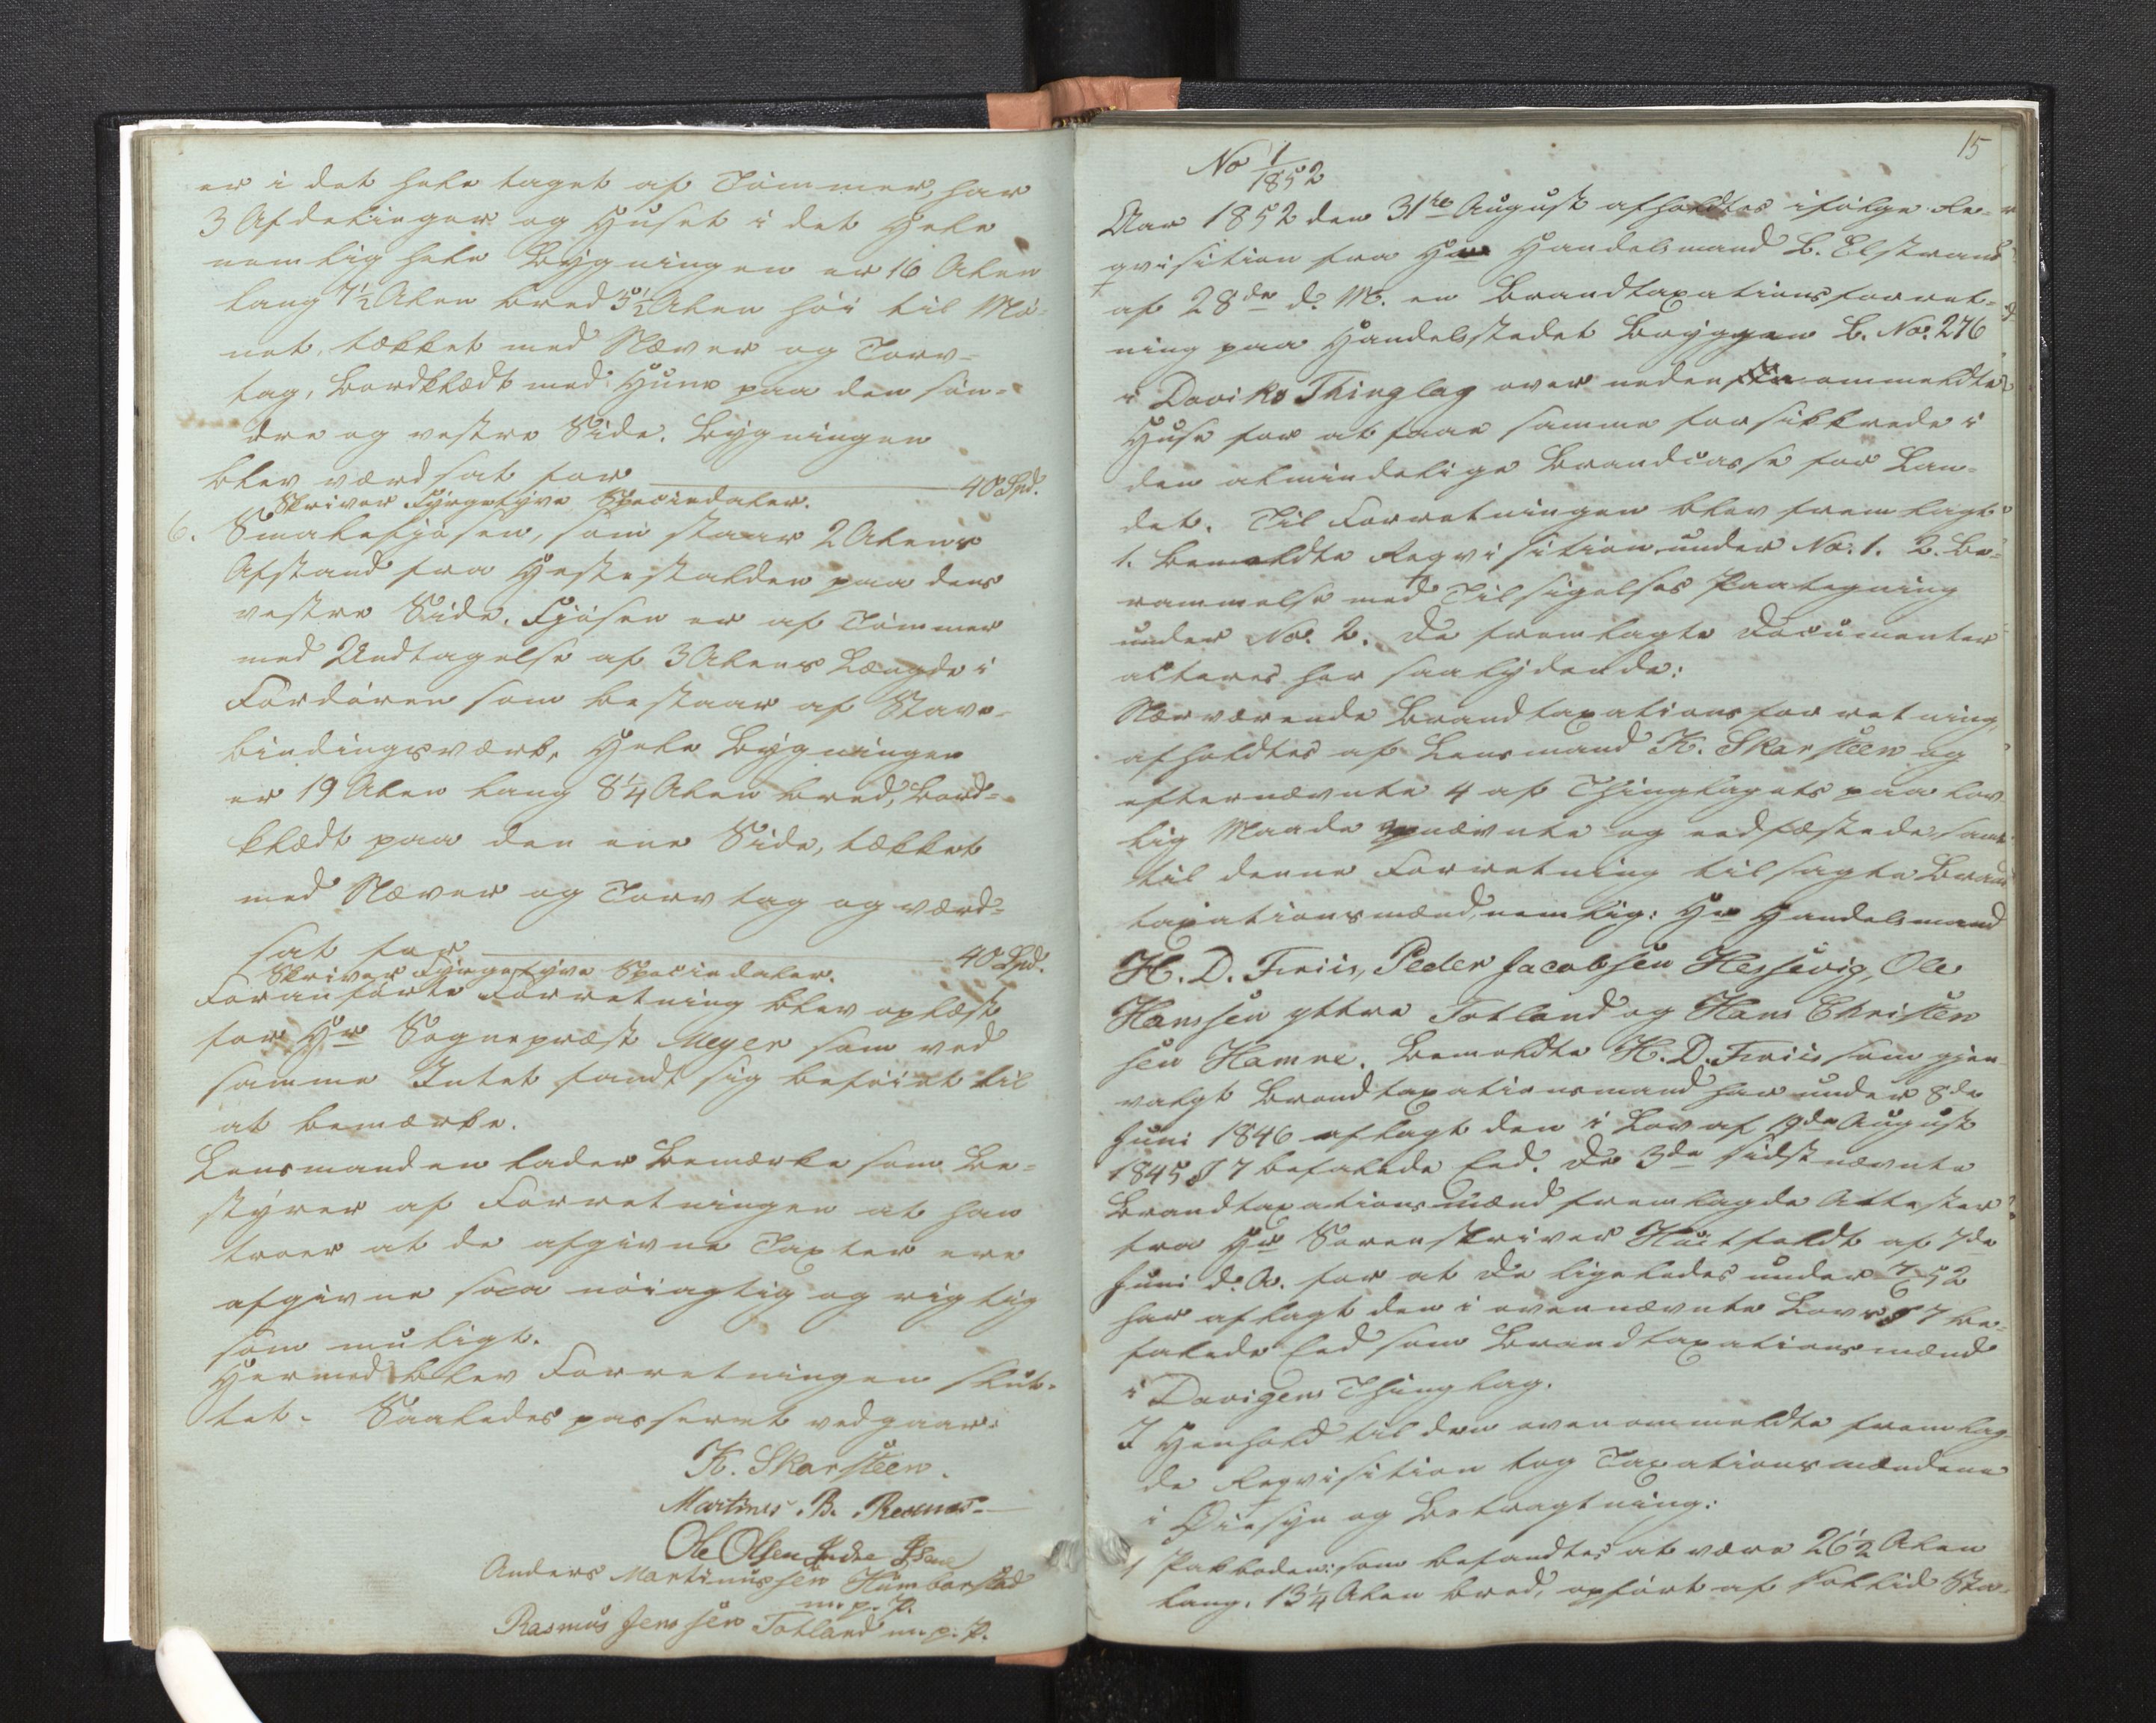 er i det hele taget af Tømmer, har
3 Afdelinger og Huset i det Hele
nemlig hele Bygningen er 16 Alen
lang 7½ Alen bred 5½ Alen høi til Mø-
net, tækket med Næver og Torv-
tag, bordklædt med Hune paa den søn-
dre og vestre Side. Bygningen
blev værdsat for 40 Spd.
Skriver Fyrgetyve Speciedaler.
6. Smalefjøsen, som staar 2 Alens
Afstand fra Hestestalden paa dens
vestre Side. Fjøsen er af Tømmer
med Undtagelse af 3 Alens Længde i
Fordøren som bestaar af Stave-
bindingsværk, Hele Bygningen
er 19 Alen lang 8¼ Alen bred, bord-
klædt paa den ene Side, tækket
med Næver og Torvtag og værd-
sat for 40 Spd.
Skriver Fyrgetyve Speciedaler.
Foranførte Forretning blev oplæst
for Hr Sognepræst Meyer som ved
samme Intet fandt sig beføiet til
at bemærke.
Lensmanden lader bemærke som Be-
styrer af Forretningen at han
troer at de afgivne Taxter ere
afgivne saa nøiagtig og rigtig
som muligt.
Hermed blev Forretningen slut-
tet. Saaledes passeret vedgaar:
K. Skarsteen.
Martinus. B.
Ole Olsen Indre
Anders Martinussen Humborstad
m. p. P.
Rasmus Jenssen Totland m. p. P.
15
No 1/1852
Aar 1852 den 31te August afholdtes ifølge Re-
qvisition fra Hr Handelsmand L. Elstrand
af 28de d. M. en Brandtaxationsforret-
ning paa Handelsstedet Bryggen L. No. 276
i Daviks Thinglag over neden ommeldte
Huse for at faae samme forsikkrede i
den almindelige Brandcasse for Lan-
det. Til Forretningen blev fremlagt
1. Bemeldte Reqvisition under No. 1. 2. Be-
rammelse med Tilsigelses Paategning
under No. 2. De fremlagte Documenter
acteres her saalydende:
Nærværende Brandtaxationsforretning,
afholdtes af Lensmand K. Skarsteen og
efternævnte 4 af Thinglagets paa lov-
lig Maade opnævnte og eedfæstede, samt
til denne Forretning tilsagte Brand
taxationsmænd, nemlig: Hr Handelsmand
H. D. Friis, Peder Jacobsen Hessevig, Ole
Hanssen yttre Totland og Hans Christen
sen Hamne. Bemeldte H. D. Friis som gjen-
valgt Brandtaxationsmand har under 8de
Juni 1846 aflagt den i Lov af 19de August
1845 § 7 befalede Eed. De 3de sidstnævnte
Brandtaxationsmænd fremlagde Attester
fra Hr Sorenskriver Huitfeldt af 7de
Juni d. A. for at de ligeledes under 7/6 52
har aflagt den i ovennævnte Lovs § 7 be-
falede Eed som Brandtaxationsmænd
i Davigens Thinglag.
I Henhold til den ovenommeldte fremlag-
de Reqvisition tog Taxationsmændene
i Øiesyn og Betragtning:
1 Pakboden: som befandtes at være 26½ Alen
lang, 13¼ Alen bred, opført af solid Sta-